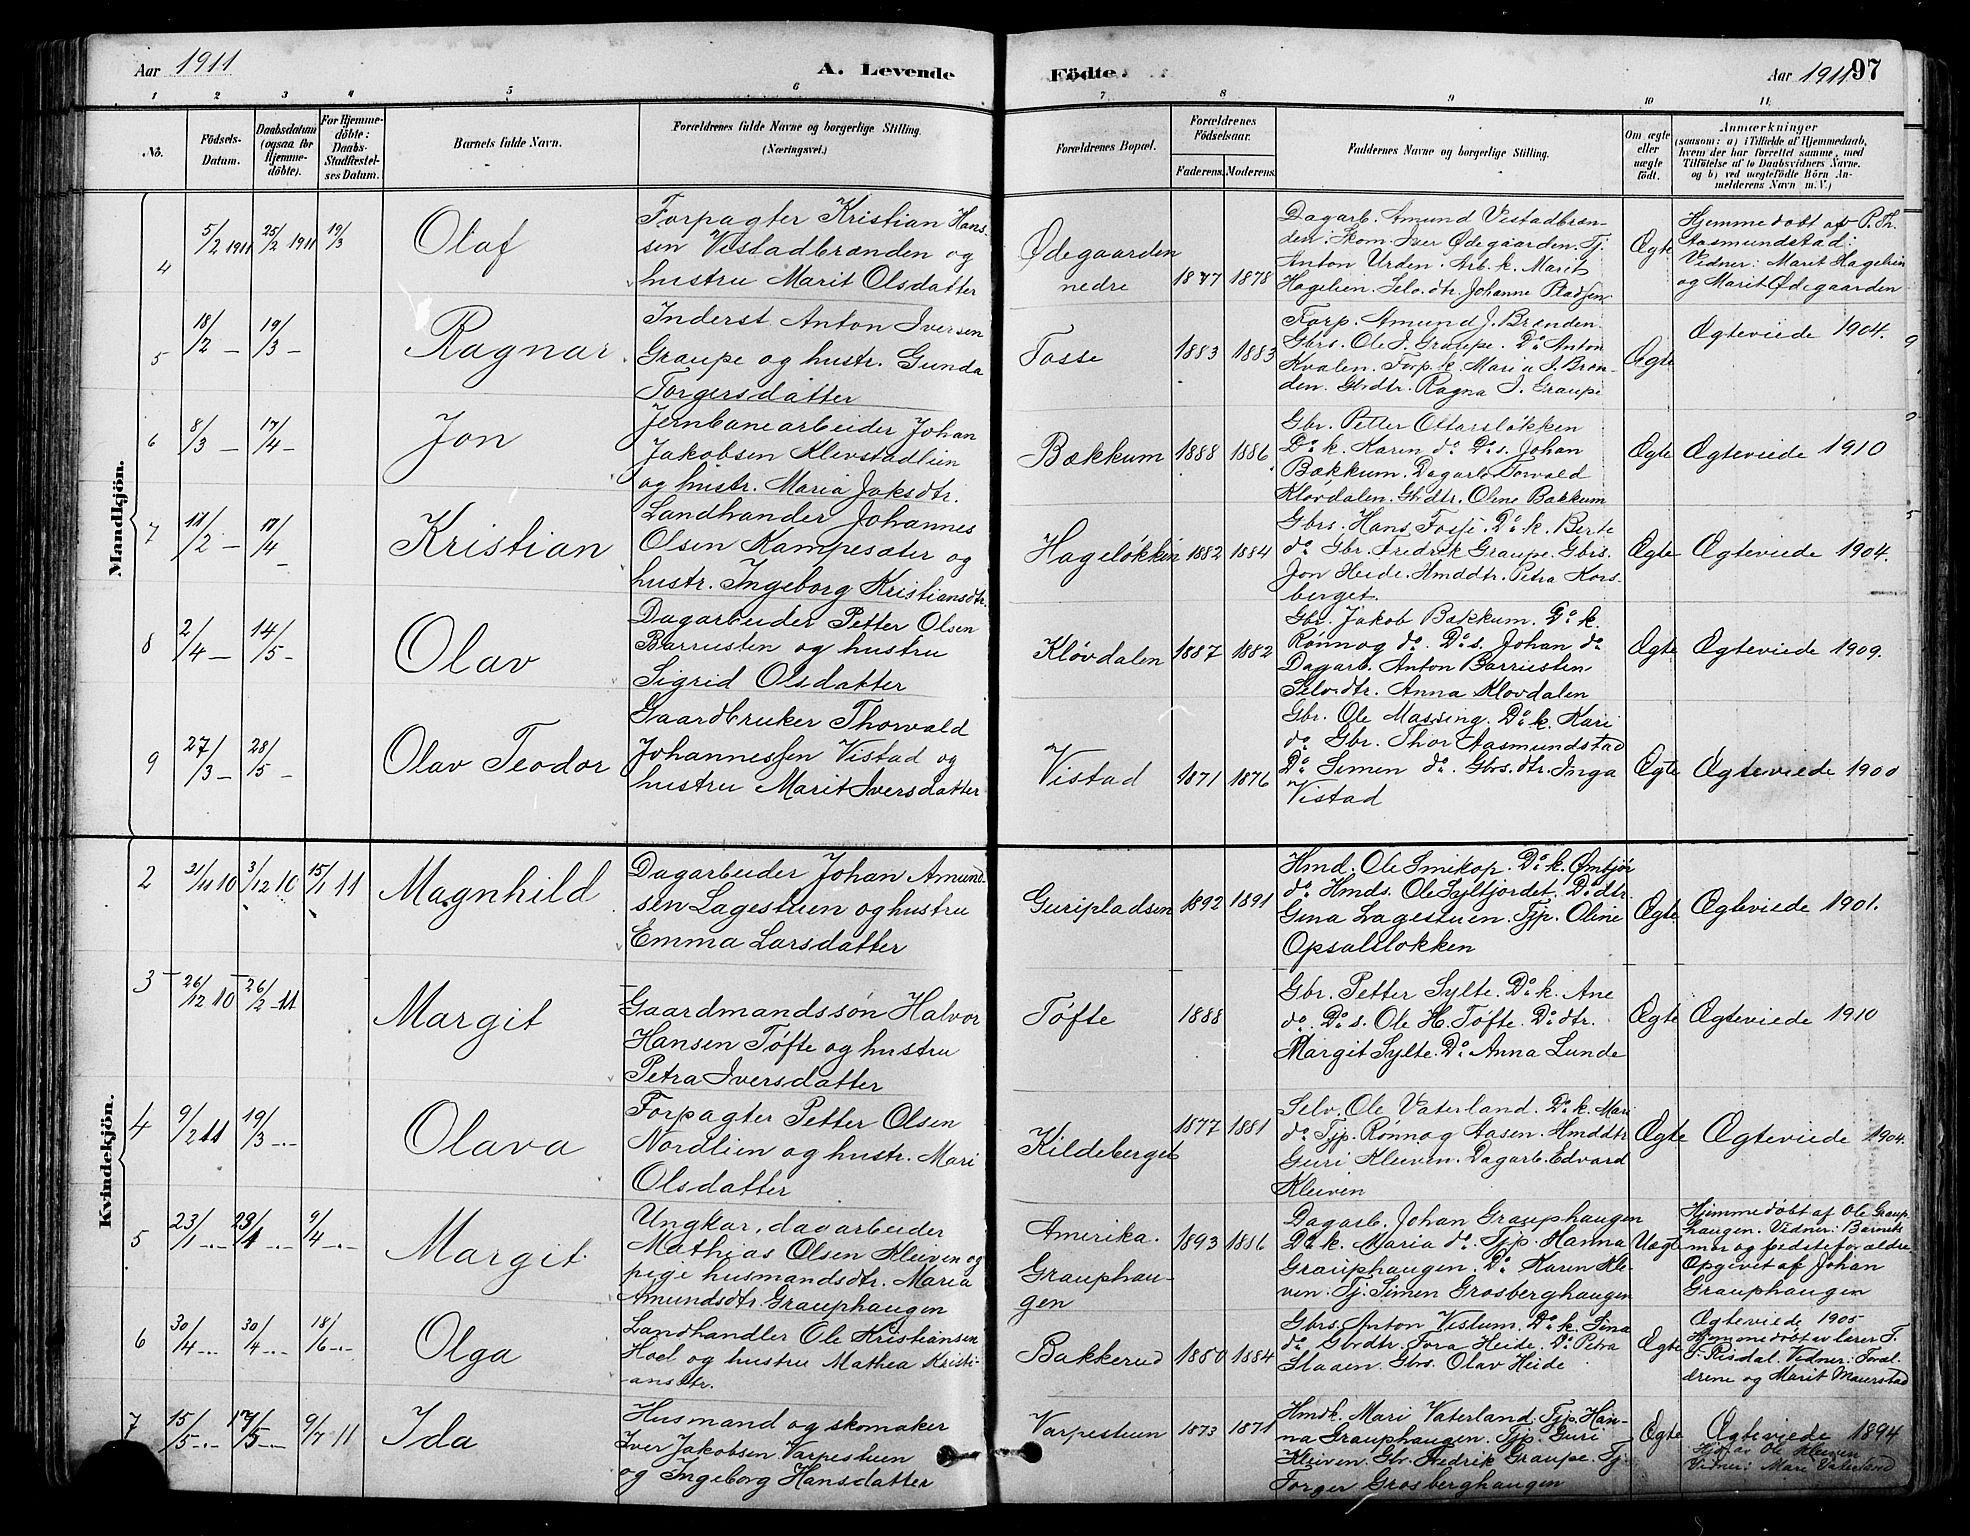 Aar 1911
A. Levende
Födte.
Aar 1911
97
1 2 3 4 5 6 7 8 9 10 11
No.
Födsels-
Datum.
Daabsdatum
(ogsaa for
Hjemme-
döbte).
For Hjemme-
döbte:
Daabs-
Stadfæstel-
ses Datum.
Barnets fulde Navn.
Forældrenes fulde Navne og borgerlige Stilling.
(Næringsvei.)
Forældrenes Bopæl.
Forældrenes
Födselsaar.
Faderens.
Moderens.
Faddernes Navne og borgerlige Stilling.
Om ægte
eller
uægte
födt.
Anmærkninger
(saasom: a) i Tilfælde af Hjemmedaab,
hvem der har forrettet samme, med
Tilföielse af to Daabsvidners Navne.
og b) ved uægtefödte Börn An-
melderens Navn m.V.)
Mandkjön.
4
5/2 1911
25/2 1911
19/3
Olaf
Forpagter Kristian Hans-
sen Vistadbrænden og
hustru Marit Olsdatter
Ødegaarden
nedre
1877
1878
Dagarb. Amund Vistadbræn-
den. Skom. Iver Ødegaarden. Tj.
Anton Urden. Arb. k. Marit
Hagelien. Selv.dtr. Johanne Pladsen
Ægte
Hjemmedøbt af P. Th.
Aasmundstad:
Vidner: Marit Hagelien
og Marit Ødegaarden
5
18/2 –
19/3 –
Ragnar
Inderst Anton Iversen
Graupe og hustr. Gunda
Torgersdatter
Fosse
1883
1883
Forp. Amund J. Brænden.
Gbrs. Ole I. Graupe. Do Anton
Kvalen. Forp. k. Maria J. Bræn-
den. Gb.dtr. Ragna I. Graupe
Ægte
Ægteviede 1904.
6
8/3 –
17/4 –
Jon
Jernbanearbeider Johan
Jakobsen Klevstadlien
og hustr. Maria Jaksdtr.
Bækkum
1888
1886
Gbr. Petter Ottarsløkken
Do k. Karen do Do s. Johan
Bækkum. Dagarb. Torvald
Kløvdalen. Gb.dtr. Oline Bækkum
Ægte
Ægteviede 1910
7
11/2 –
17/4 –
Kristian
Landhander Johannes
Olsen Kampesæter og
hustr. Ingeborg Kristiansdtr.
Hageløkken
1882
1884
Gbrs. Hans Fosse. Do k. Berte
do Gbr. Fredrik Graupe. Gbrs.
Jon Heide. Hmddtr. Petra Kors-
berget.
Ægte
Ægteviede 1904.
8
2/4 –
14/5 –
Olav
Dagarbeider Petter Olsen
Barrusten og hustru
Sigrid Olsdatter
Kløvdalen
1887
1882
Gbr. Jakob Bækkum. Do k.
Rønnog do. Do s. Johan do
Dagarb. Anton Barriesten
Selv.dtr. Anna Kløvdalen
Ægte
Ægteviede 1909.
9
27/3 –
28/5 –
Olav Teodor
Gaardbruker Thorvald
Johannessen Vistad og
hustru Marit Iversdatter
Vistad
1871
1876
Gbr. Ole Massing. Do k. Kari
do Gbr. Thor Aasmundstad
Do Simen do. Gbrs.dtr. Inga
Vistad
Ægte
Ægteviede 1900
Kvindekjön.
2
21/11 10
3/12 10
15/1 11
Magnhild
Dagarbeider Johan Amund-
sen Lagestuen og hustru
Emma Larsdatter
Guripladsen
1892
1891
Hmd. Ole Smikop. Do k. Ømbjør
do. Hmds. Ole Syltfjordet. Do dtr.
Gina Lagestuen. Tjp. Oline
Opsalsløkken
Ægte
Ægteviede 1901.
3
26/12 10
26/2 11
Margit
Gaardmandssøn Halvor
Hansen Tøfte og hustru
Petra Iversdatter
Tøfte
1888
Gbr. Petter Sylte. Do k. Ane
do. Do s. Ole H. Tøfte. Do dtr.
Margit Sylte. Do Anna Lunde
Ægte
Ægteviede 1910
4
9/2 11
19/3 –
Olava
Forpagter Petter Olsen
Nordlien og hustr. Mari
Olsdatter
Kildeberget
1877
1881
Selv. Ole Vaterland. Do k. Mari
do Tjp. Rønnog Aasen. Hmddtr
Guri Kleiven. Dagarb. Edvard
Kleiven
Ægte
Ægteviede 1904.
5
23/1 –
29/1 –
9/4 –
Margit
Ungkar, dagarbeider
Mathias Olsen Kleiven og
pige husmandsdtr. Maria
Amundsdtr. Grauphaugen
Amerika.
Grauphau-
gen
1893
1886
Dagarb. Johan Grauphaugen
Do k. Maria do. Tjp. Hanna
Grauphaugen. Do Karen Klei-
ven. Tj. Simen Grosberghaugen
Uægte
Hjemmedøbt af Ole Graup-
haugen. Vidner: Barnets
mor og fødsteforældre
Opgivet af Johan
Grauphaugen
6
30/4 –
30/4 –
18/6 –
Olga
Landhandler Ole Kristiansen
Hoel og hustru Mathea Kristi-
ansdtr.
Bakkerud
1880
1884
Gbrs. Anton Vistum. Do k. Sina
do Gbrdtr. Tora Heide. Do Petra
Slaaen. Gbrs. Olav Heide
Ægte
Ægteviede 1905
Hjemmedøbt av lærer T.
Risdal. Vidner: Foræl-
drene og Marit Maurstad
7
15/5 –
17/5 –
9/7 11
Ida
Husmand og skomaker
Iver Jakobsen Varpestuen
og Ingeborg Hansdatter
Varpestuen
1873
1871
Hmdk. Mari Vaterland. Tjp. Han-
na Grauphaugen. Tjp. Guri
Kleiven. Gbr. Fredrik Graupe. Tj.
Torger Grosberghaugen
Ægte
Ægteviede 1894
Hjd. av Ole Kleiven
Vidner: Mari Vaterland